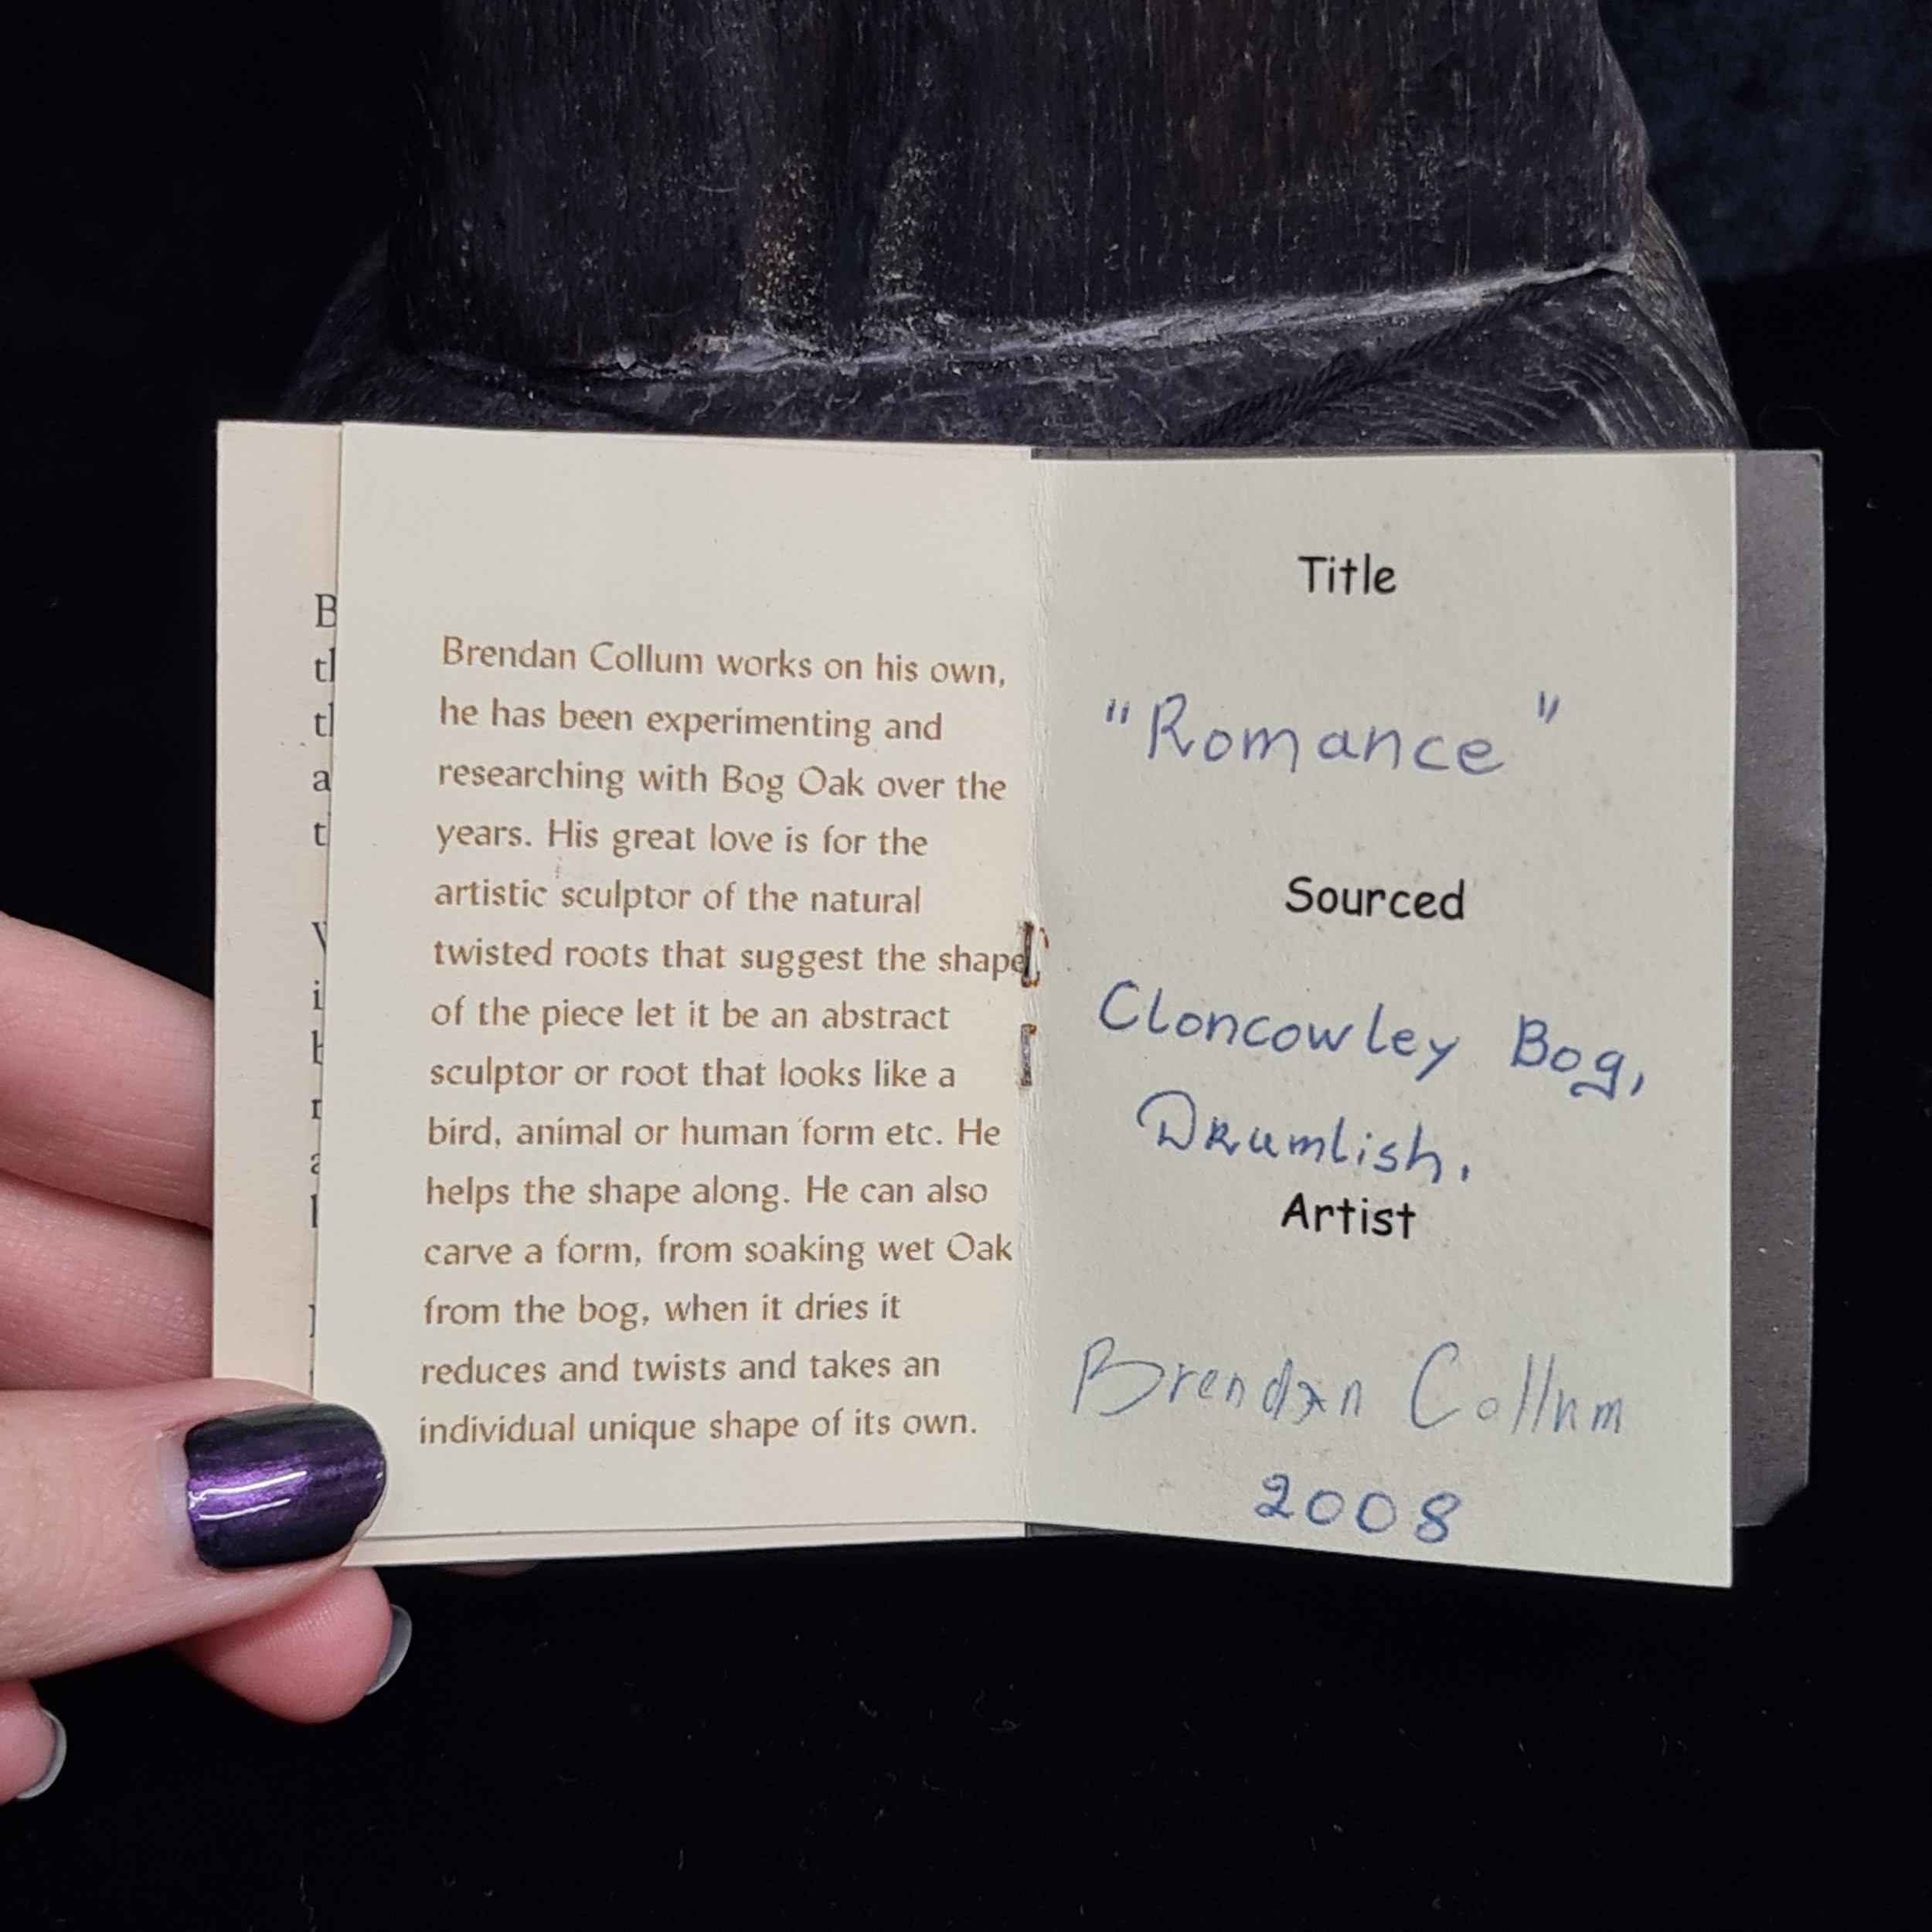 Brendan Collum works on his own,
he has been experimenting and
researching with Bog Oak over the
years. His great love is for the
artistic sculptor of the natural
twisted roots that suggest the shape
of the piece let it be an abstract
sculptor or root that looks like a
bird, animal or human form etc. He
helps the shape along. He can also
carve a form, from soaking wet Oak
from the bog, when it dries it
reduces and twists and takes an
individual unique shape of its own.
Title
"Romance"
Sourced
Cloncowley Bog,
Drumlish.
Artist
Brendan Collum
2008